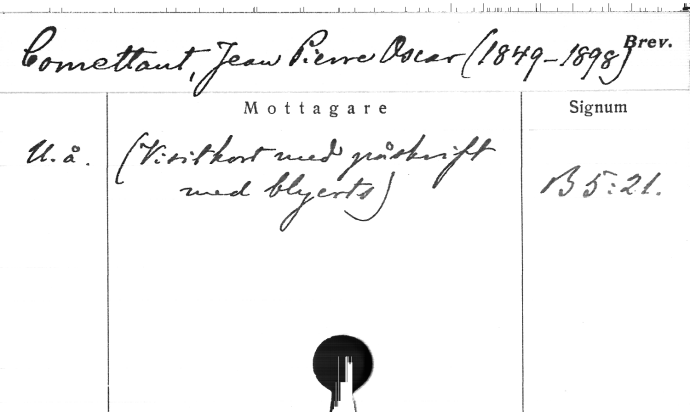 Comettant, Jean Pierre Oscar (1849-1898) Brev.
Mottagare Signum
U. å. (Visitkort med påskrift
med blyerts) B 5:21.